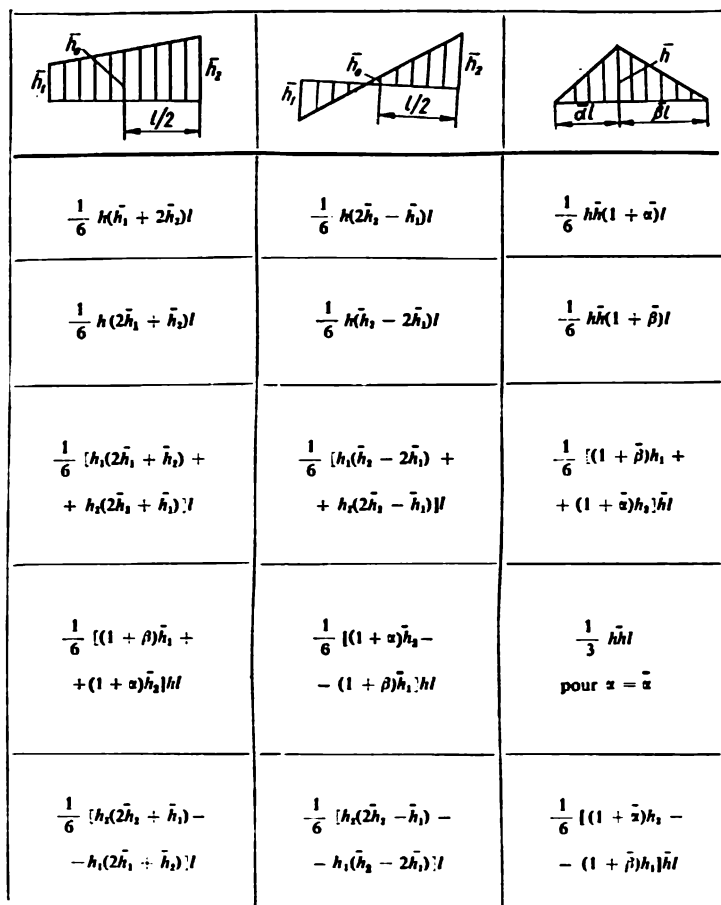 h̄₁ h̄₀ h̄₂ l/2
h̄₁ h̄₀ h̄₂ l/2
h̄ ᾱl β̄l
1/6 h(h̄₁ + 2h̄₂)l
1/6 h(2h̄₂ − h̄₁)l
1/6 hh̄(1 + ᾱ)l
1/6 h(2h̄₁ + h̄₂)l
1/6 h(h̄₂ − 2h̄₁)l
1/6 hh̄(1 + β̄)l
1/6 [h₁(2h̄₁ + h̄₂) +
+ h₂(2h̄₂ + h̄₁)]l
1/6 [h₁(h̄₂ − 2h̄₁) +
+ h₂(2h̄₂ − h̄₁)]l
1/6 [(1 + β̄)h₁ +
+ (1 + ᾱ)h₂]h̄l
1/6 [(1 + β)h̄₁ +
+(1 + α)h̄₂]hl
1/6 [(1 + α)h̄₂ −
− (1 + β)h̄₁]hl
1/3 hh̄l
pour α = ᾱ
1/6 [h₂(2h̄₂ + h̄₁) −
−h₁(2h̄₁ + h̄₂)]l
1/6 [h₂(2h̄₂ − h̄₁) −
− h₁(h̄₂ − 2h̄₁)]l
1/6 [(1 + ᾱ)h₂ −
− (1 + β̄)h₁]h̄l